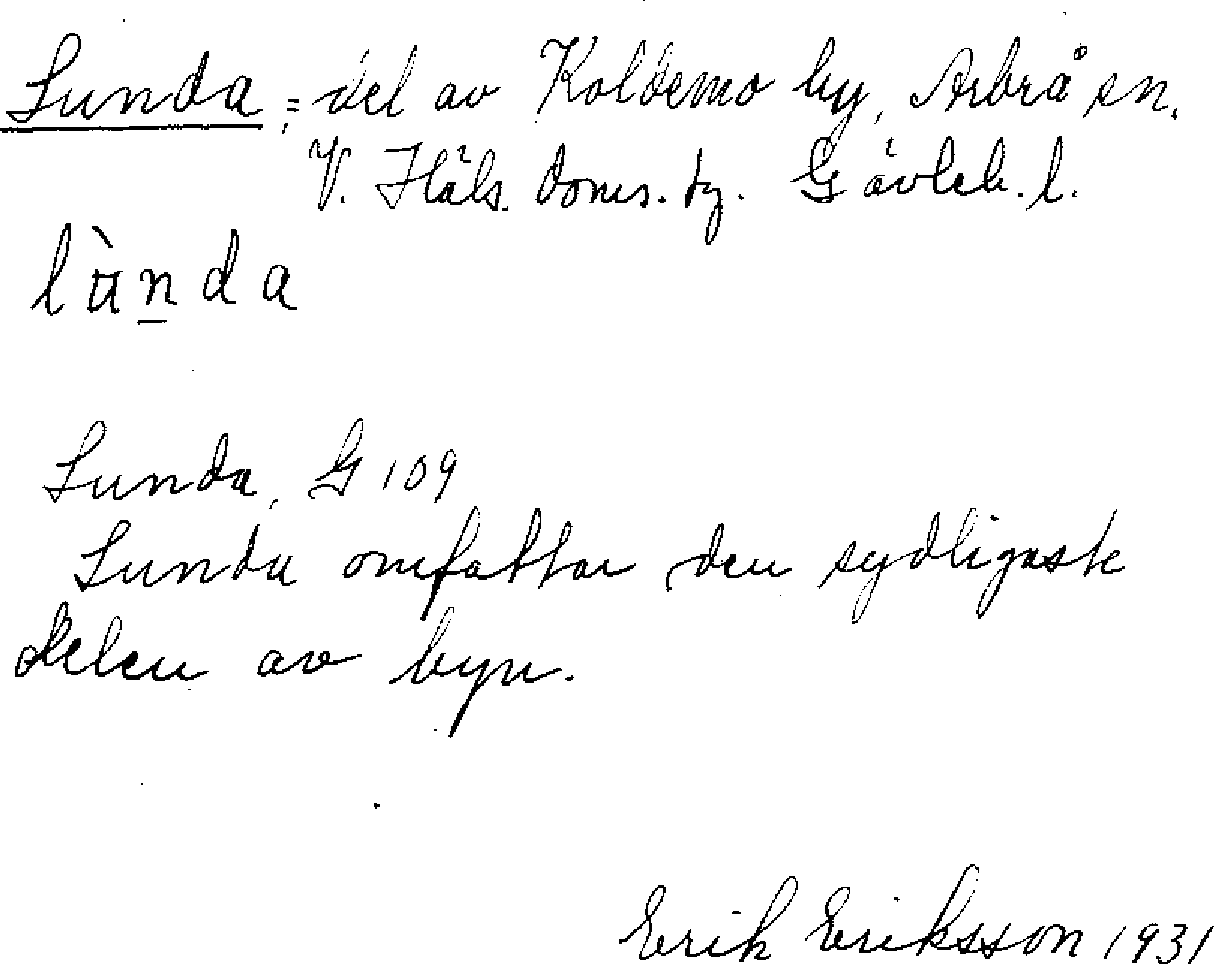 Lunda, = del av Koldemo by, Arbrå sn.
V. Häls. doms. tg. Gävleb. l.
lùn̲da
Lunda, G 109
Lunda omfattar den sydligaste
delen av byn.
Erik Eriksson 1931